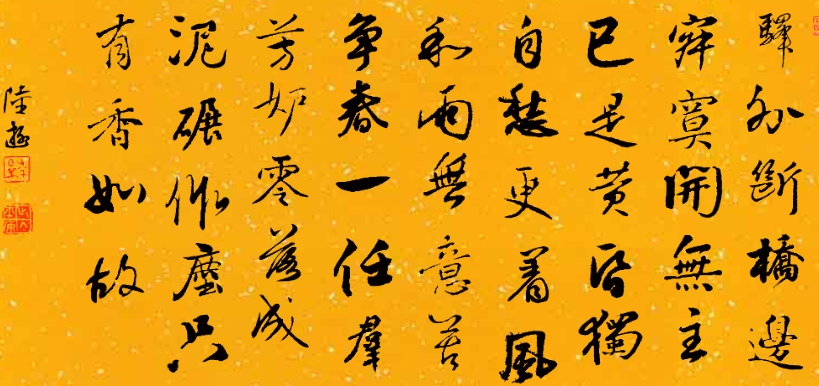 驛外斷橋邊
寂寞開無主
已是黄昏獨
自愁更着風
和雨無意苦
争春一任羣
芳妒零落成
泥碾作塵只
有香如故
陸游